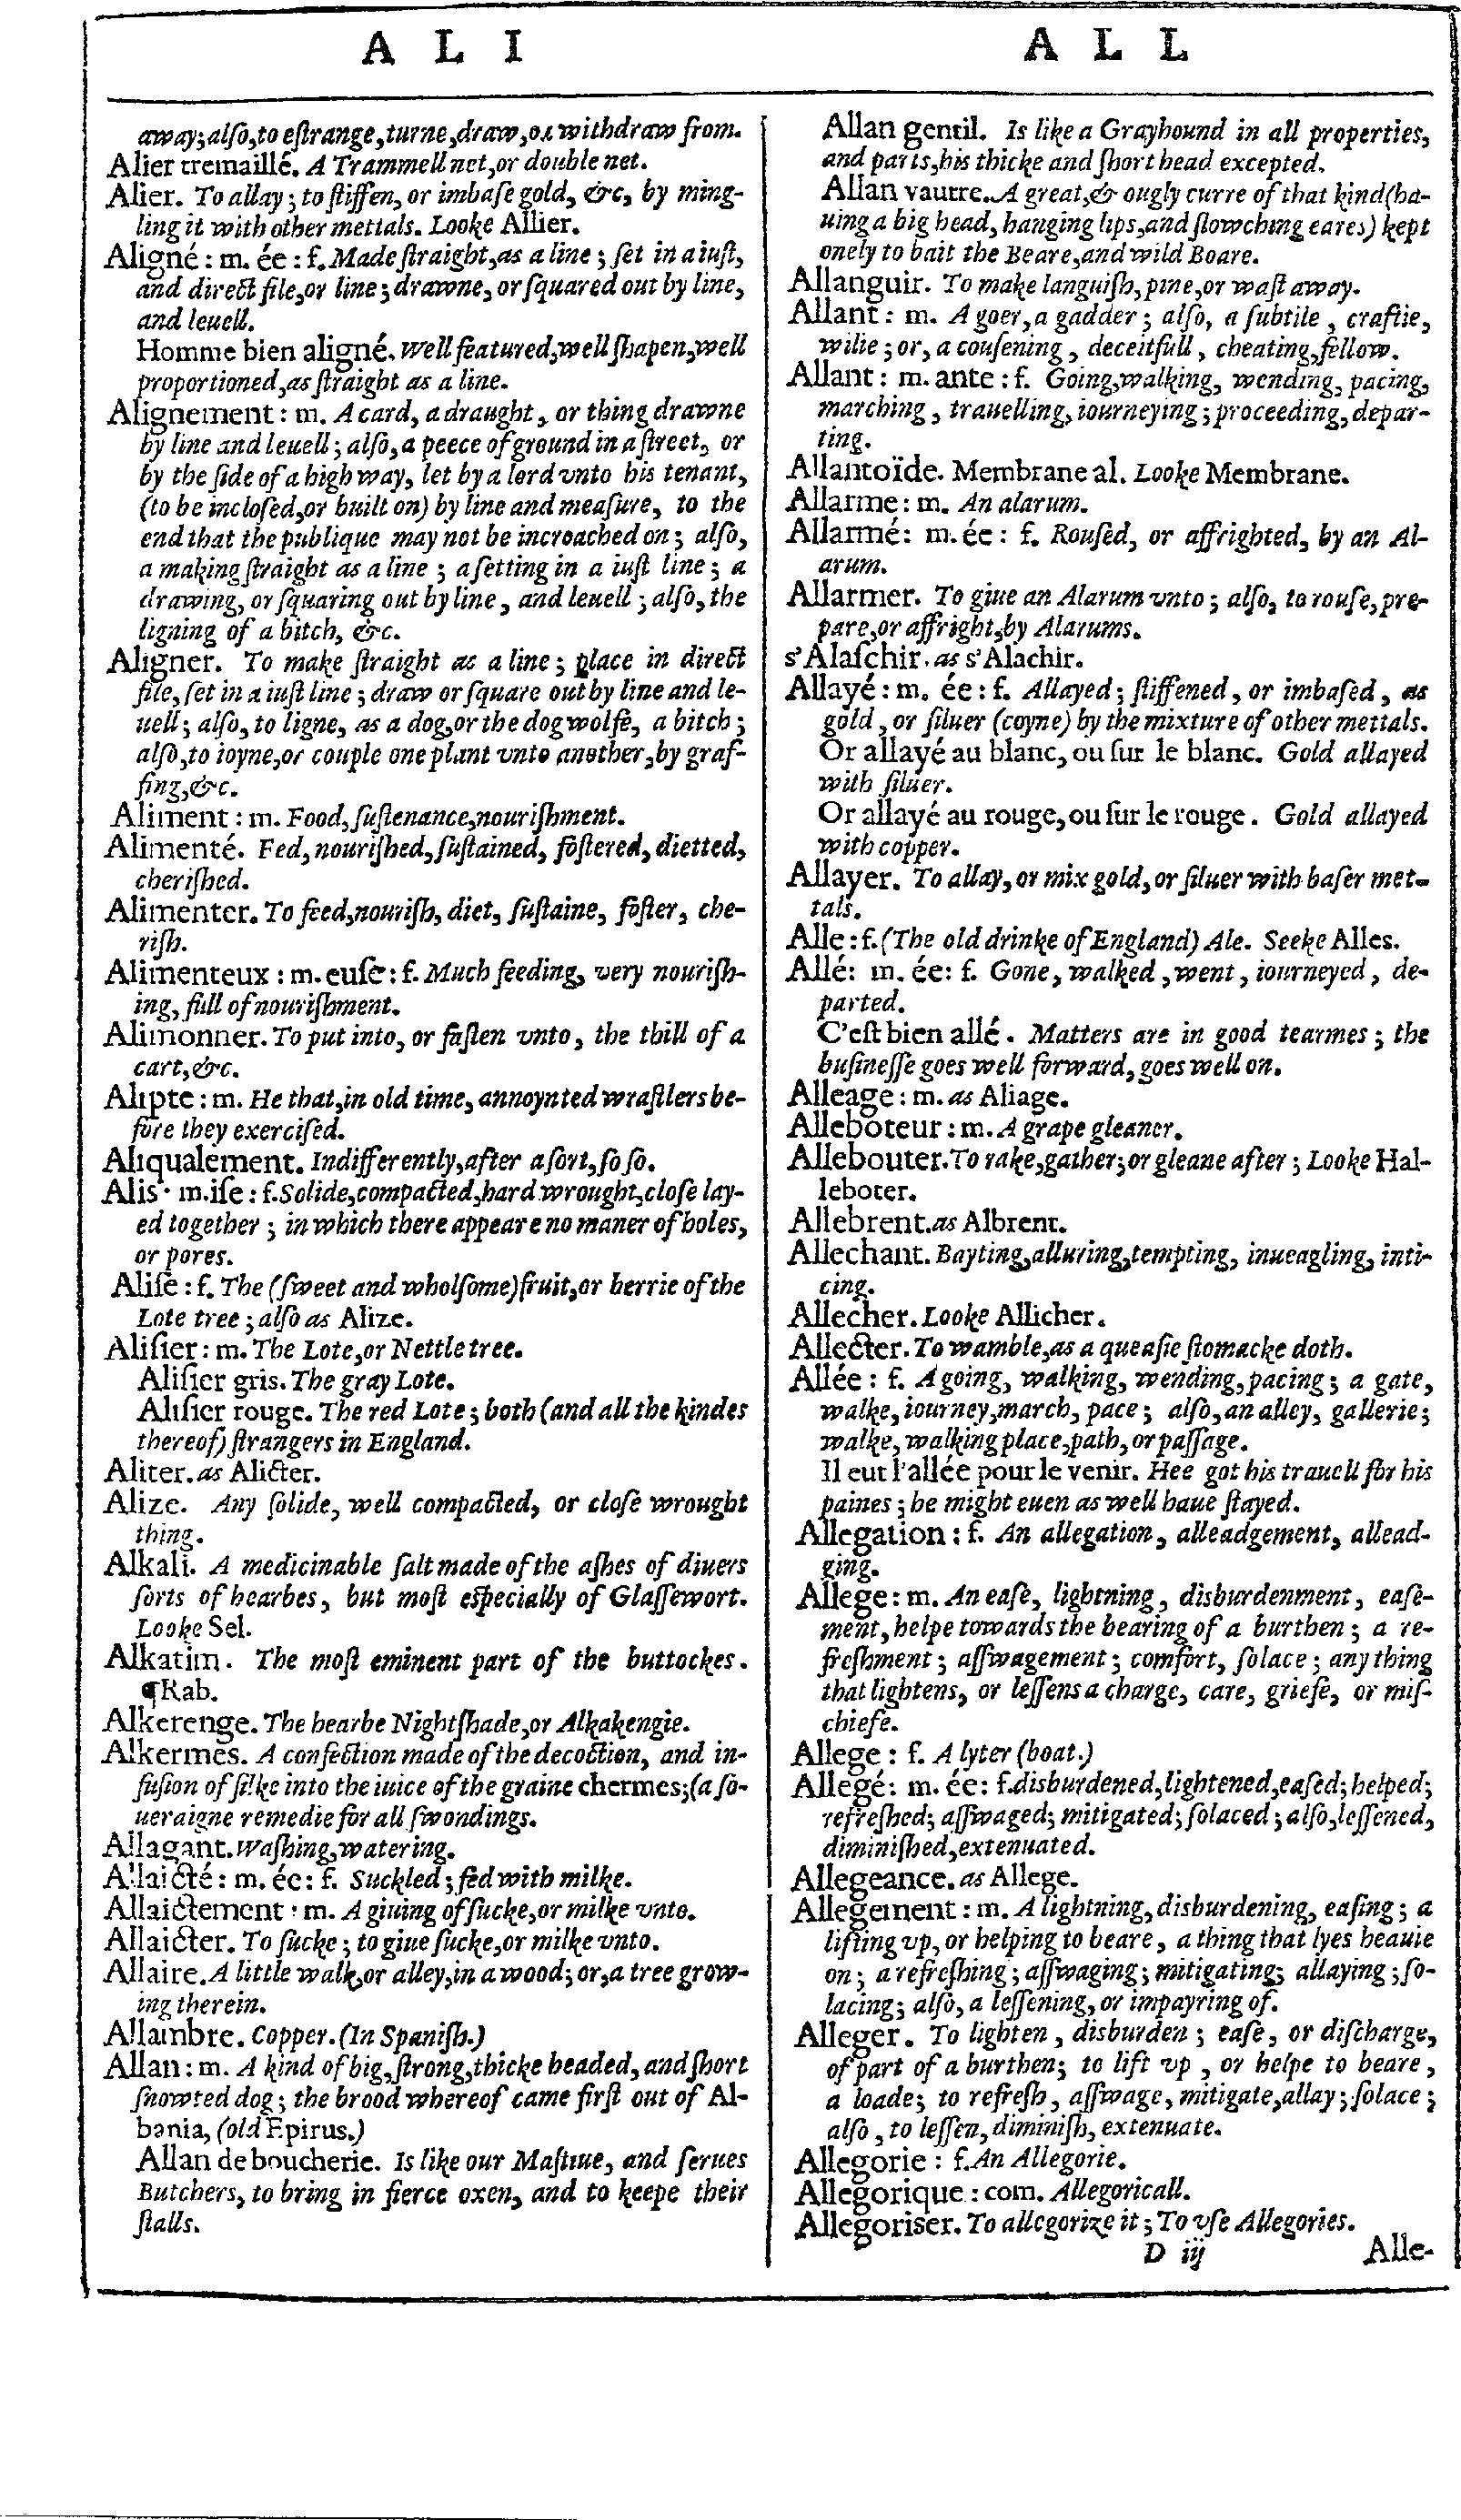 A L I
away; alſo, to eſtrange, turne, draw, or withdraw from.
Alier tremaillé. A Trammell net, or double net.
Alier. To allay; to ſtiffen, or imbaſe gold, &c, by ming-
ling it with other mettals. Looke Allier.
Aligné: m. ée: f. Made ſtraight, as a line; ſet in a iuſt,
and direct file, or line; drawne, or ſquared out by line,
and leuell.
Homme bien aligné. Well featured, well ſhapen, well
proportioned, as ſtraight as a line.
Alignement: m. A card, a draught, or thing drawne
by line and leuell; alſo, a peece of ground in a ſtreet, or
by the ſide of a high way, let by a lord vnto his tenant,
(to be incloſed, or built on) by line and meaſure, to the
end that the publique may not be incroached on; alſo,
a making ſtraight as a line; a ſetting in a iuſt line; a
drawing, or ſquaring out by line, and leuell; alſo, the
ligning of a bitch, &c.
Aligner. To make ſtraight as a line; place in direct
file, ſet in a iuſt line; draw or ſquare out by line and le-
uell; alſo, to ligne, as a dog, or the dog wolfe, a bitch;
alſo, to ioyne, or couple one plant vnto another, by graf-
fing, &c.
Aliment: m. Food, ſuſtenance, nouriſhment.
Alimenté. Fed, nouriſhed, ſuſtained, foſtered, dietted,
cheriſhed.
Alimenter. To feed, nouriſh, diet, ſuſtaine, foſter, che-
riſh.
Alimenteux: m. euſe: f. Much feeding, very nouriſh-
ing, full of nouriſhment.
Alimonner. To put into, or faſten vnto, the thill of a
cart, &c.
Alipte: m. He that, in old time, annoynted wraſtlers be-
fore they exerciſed.
Aliqualement. Indifferently, after a ſort, ſo ſo.
Alis: m. iſe: f. Solide, compacted, hard wrought, cloſe lay-
ed together; in which there appeare no maner of holes,
or pores.
Aliſe: f. The (ſweet and wholſome) fruit, or berrie of the
Lote tree; alſo as Alize.
Aliſier: m. The Lote, or Nettle tree.
Aliſier gris. The gray Lote.
Aliſier rouge. The red Lote; both (and all the kindes
thereof) ſtrangers in England.
Aliter. as Alicter.
Alize. Any ſolide, well compacted, or cloſe wrought
thing.
Alkali. A medicinable ſalt made of the aſhes of diuers
ſorts of hearbes, but moſt eſpecially of Glaſſewort.
Looke Sel.
Alkatim. The moſt eminent part of the buttockes.
¶Rab.
Alkerenge. The hearbe Nightſhade, or Alkakengie.
Alkermes. A confection made of the decoction, and in-
fuſion of ſilke into the iuice of the graine chermes; (a ſo-
ueraigne remedie for all ſwondings.
Allagant. Waſhing, watering.
Allaicté: m. ée: f. Suckled; fed with milke.
Allaictement: m. A giuing of ſucke, or milke vnto.
Allaicter. To ſucke; to giue ſucke, or milke vnto.
Allaire. A little walk, or alley, in a wood; or, a tree grow-
ing therein.
Allambre. Copper. (In Spaniſh.)
Allan: m. A kind of big, ſtrong, thicke headed, and ſhort
ſnowted dog; the brood whereof came firſt out of Al-
bania, (old Epirus.)
Allan de boucherie. Is like our Maſtiue, and ſerues
Butchers, to bring in fierce oxen, and to keepe their
ſtalls.
A L L
Allan gentil. Is like a Grayhound in all properties,
and parts, his thicke and ſhort head excepted.
Allan vautre. A great, & ougly curre of that kind (ha-
uing a big head, hanging lips, and ſlowching eares) kept
onely to bait the Beare, and wild Boare.
Allanguir. To make languiſh, pine, or waſt away.
Allant: m. A goer, a gadder; alſo, a ſubtile, craftie,
wilie; or, a couſening, deceitfull, cheating, fellow.
Allant: m. ante: f. Going, walking, wending, pacing,
marching, trauelling, iourneying; proceeding, depar-
ting.
Allantoïde. Membrane al. Looke Membrane.
Allarme: m. An alarum.
Allarmé: m. ée: f. Rouſed, or affrighted, by an Al-
arum.
Allarmer. To giue an Alarum vnto; alſo, to rouſe, pre-
pare, or affright, by Alarums.
s'Alaſchir. as s'Alachir.
Allayé: m. ée: f. Allayed; ſtiffened, or imbaſed, as
gold, or ſiluer (coyne) by the mixture of other mettals.
Or allayé au blanc, ou ſur le blanc. Gold allayed
with ſiluer.
Or allayé au rouge, ou ſur le rouge. Gold allayed
with copper.
Allayer. To allay, or mix gold, or ſiluer with baſer met-
tals.
Alle: f. (The old drinke of England) Ale. Seeke Alles.
Allé: m. ée: f. Gone, walked, went, iourneyed, de-
parted.
C'eſt bien allé. Matters are in good tearmes; the
buſineſſe goes well forward, goes well on.
Alleage: m. as Aliage.
Alleboteur: m. A grape gleaner.
Allebouter. To rake, gather; or gleane after; Looke Hal-
leboter.
Allebrent. as Albrent.
Allechant. Bayting, alluring, tempting, inueagling, inti-
cing.
Allecher. Looke Allicher.
Allecter. To wamble, as a queaſie ſtomacke doth.
Allée: f. A going, walking, wending, pacing; a gate,
walke, iourney, march, pace; alſo, an alley, gallerie;
walke, walking place, path, or paſſage.
Il eut l'allée pour le venir. Hee got his trauell for his
paines; he might euen as well haue ſtayed.
Allegation: f. An allegation, alleadgement, allead-
ging.
Allege: m. An eaſe, lightning, disburdenment, eaſe-
ment, helpe towards the bearing of a burthen; a re-
freſhment; aſſwagement; comfort, ſolace; any thing
that lightens, or leſſens a charge, care, griefe, or miſ-
chiefe.
Allege: f. A lyter (boat.)
Allegé: m. ée: f. disburdened, lightened, eaſed; helped;
refreſhed; aſſwaged; mitigated; ſolaced; alſo, leſſened,
diminiſhed, extenuated.
Allegeance. as Allege.
Allegement: m. A lightning, disburdening, eaſing; a
lifting vp, or helping to beare, a thing that lyes heauie
on; a refreſhing; aſſwaging; mitigating; allaying; ſo-
lacing; alſo, a leſſening, or impayring of.
Alleger. To lighten, disburden; eaſe, or diſcharge,
of part of a burthen; to lift vp, or helpe to beare,
a loade; to refreſh, aſſwage, mitigate, allay; ſolace;
alſo, to leſſen, diminiſh, extenuate.
Allegorie: f. An Allegorie.
Allegorique: com. Allegoricall.
Allegoriser. To allegorize it; To vſe Allegories.
D iij Alle-